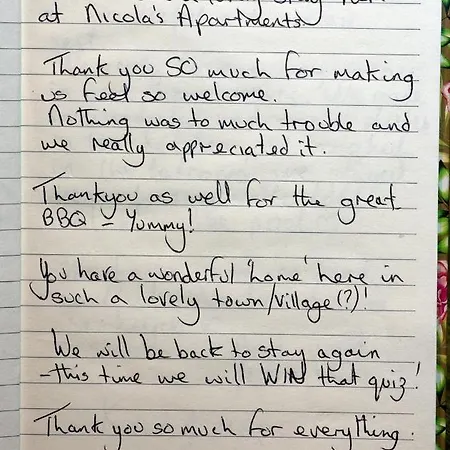 at Nicola's Apartments
Thank you SO much for making
us feel so welcome.
Nothing was to much trouble and
we really appreciated it.
Thankyou as well for the great
BBQ - Yummy!
You have a wonderful 'home' here in
such a lovely town/village(?)!
We will be back to stay again
- this time we will WIN that quiz!
Thank you so much for everything.